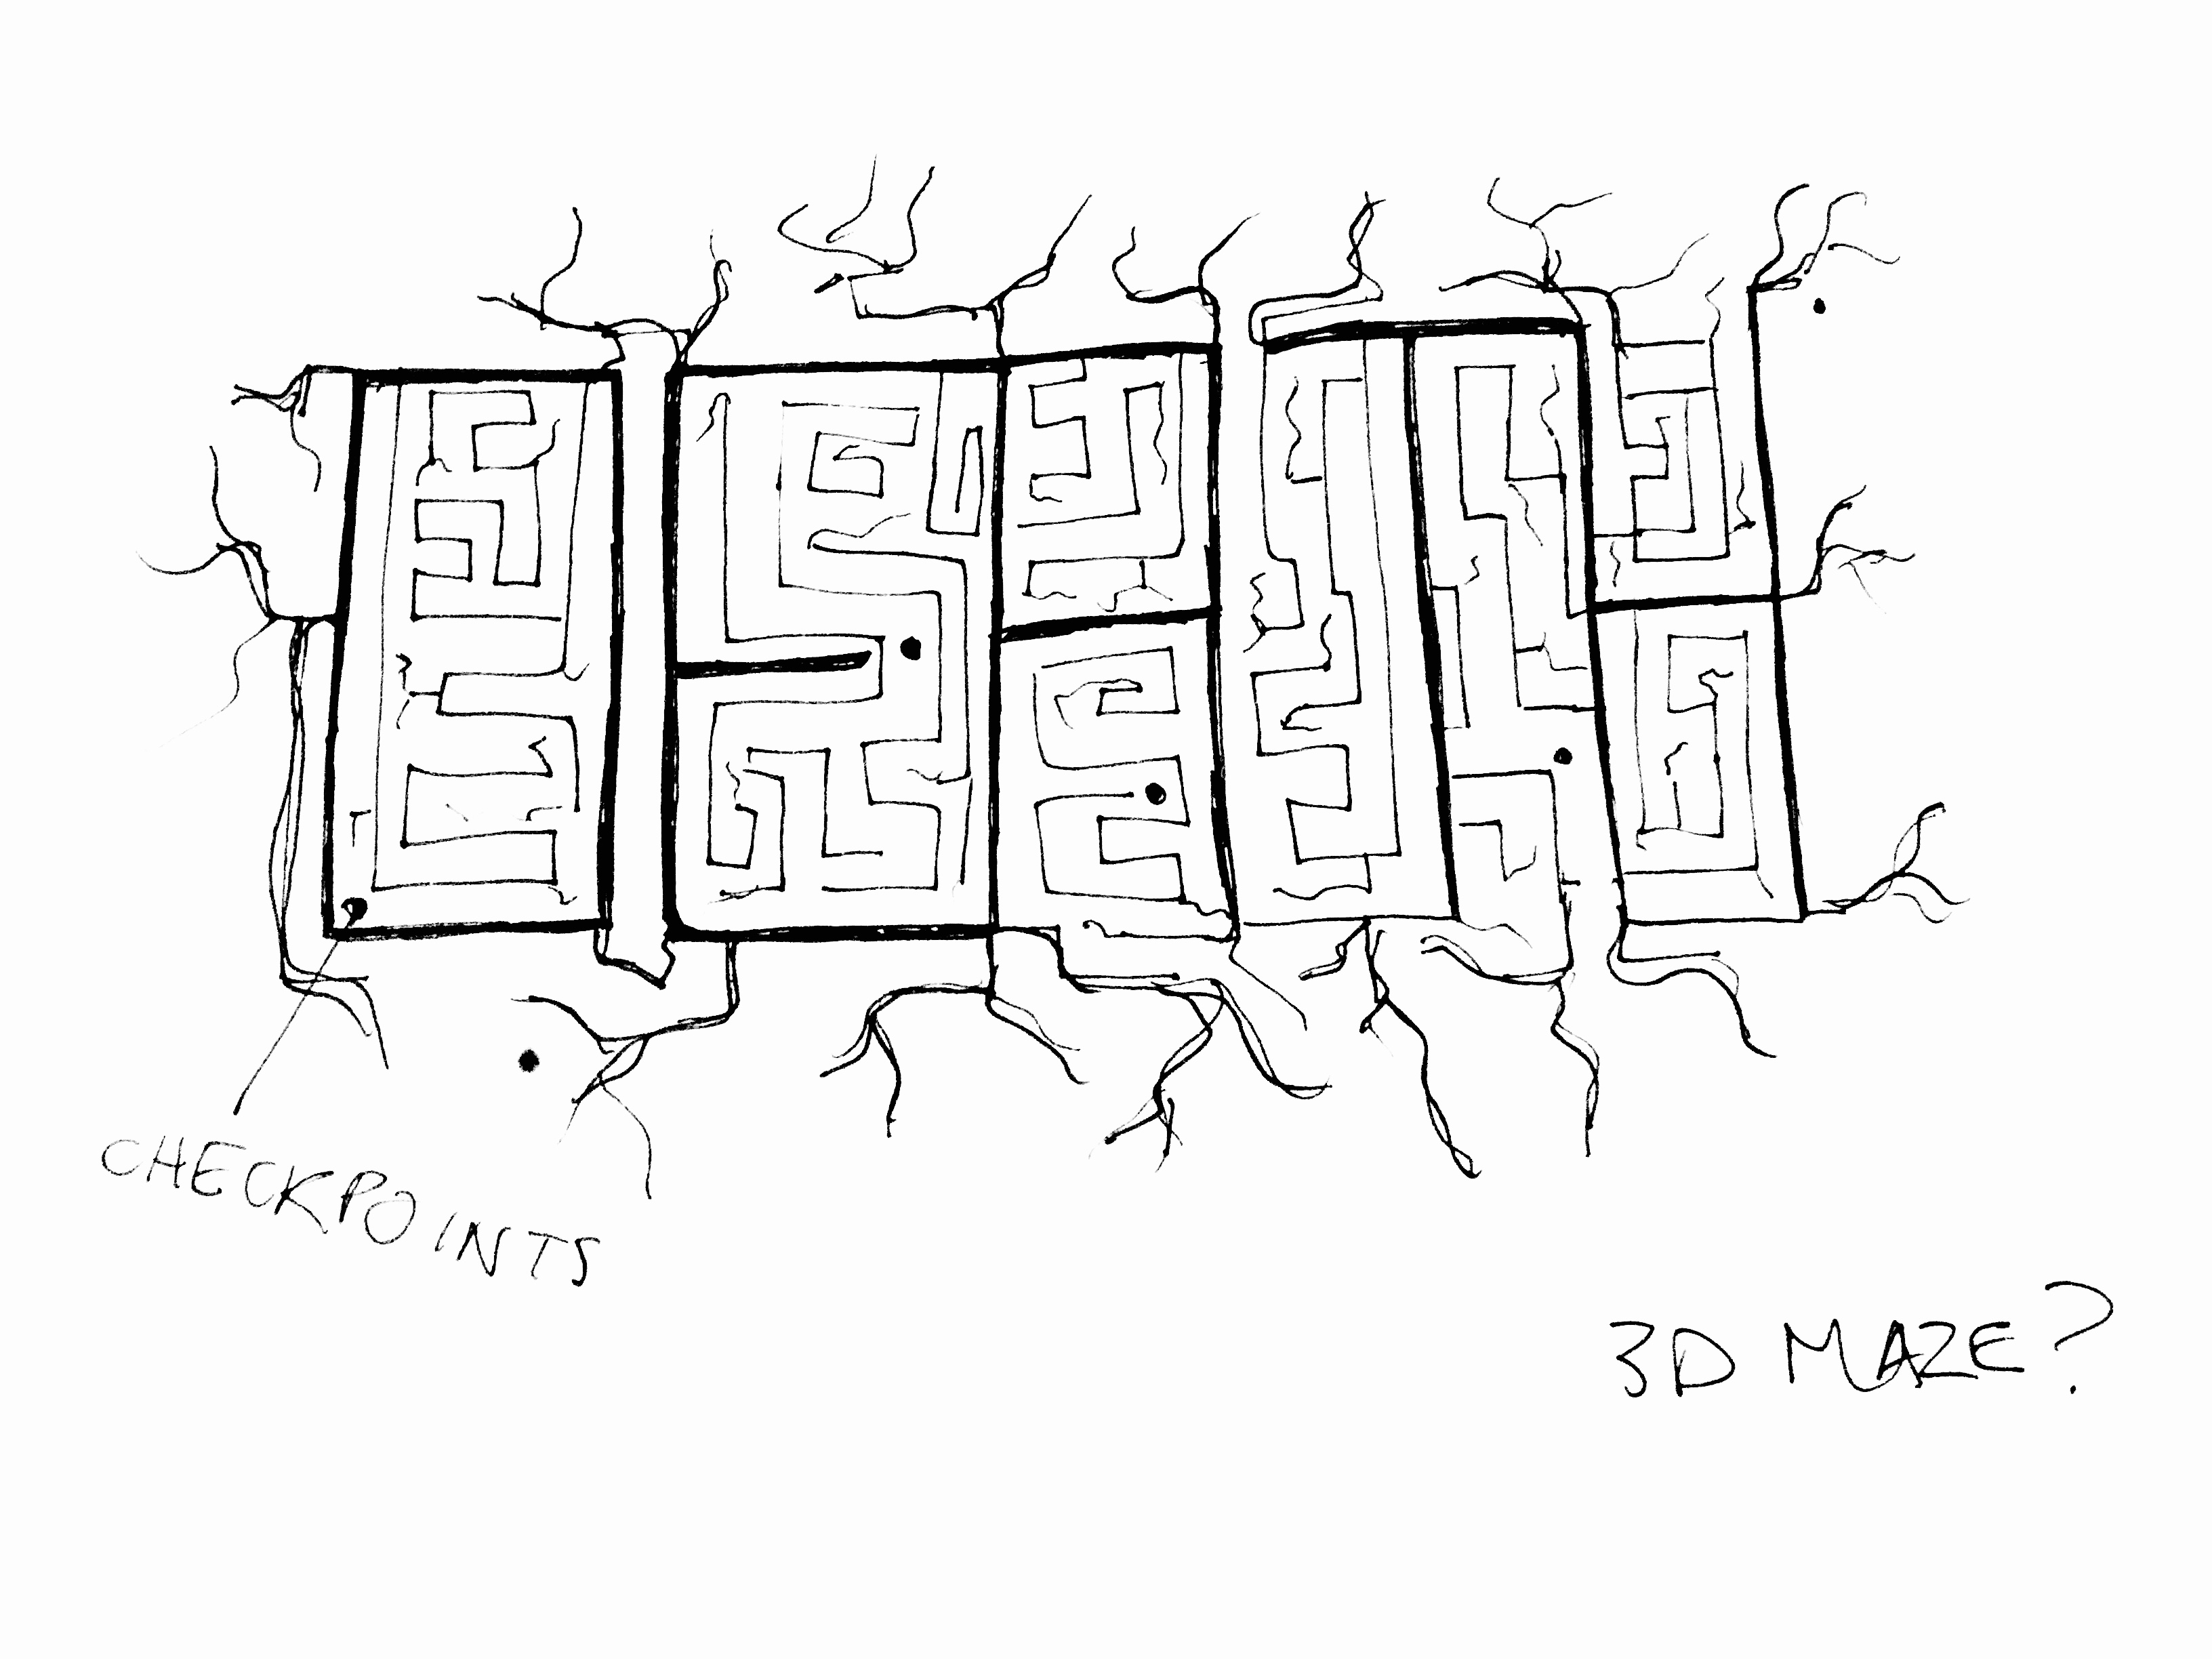 CHECKPOINTS
3D MAZE?